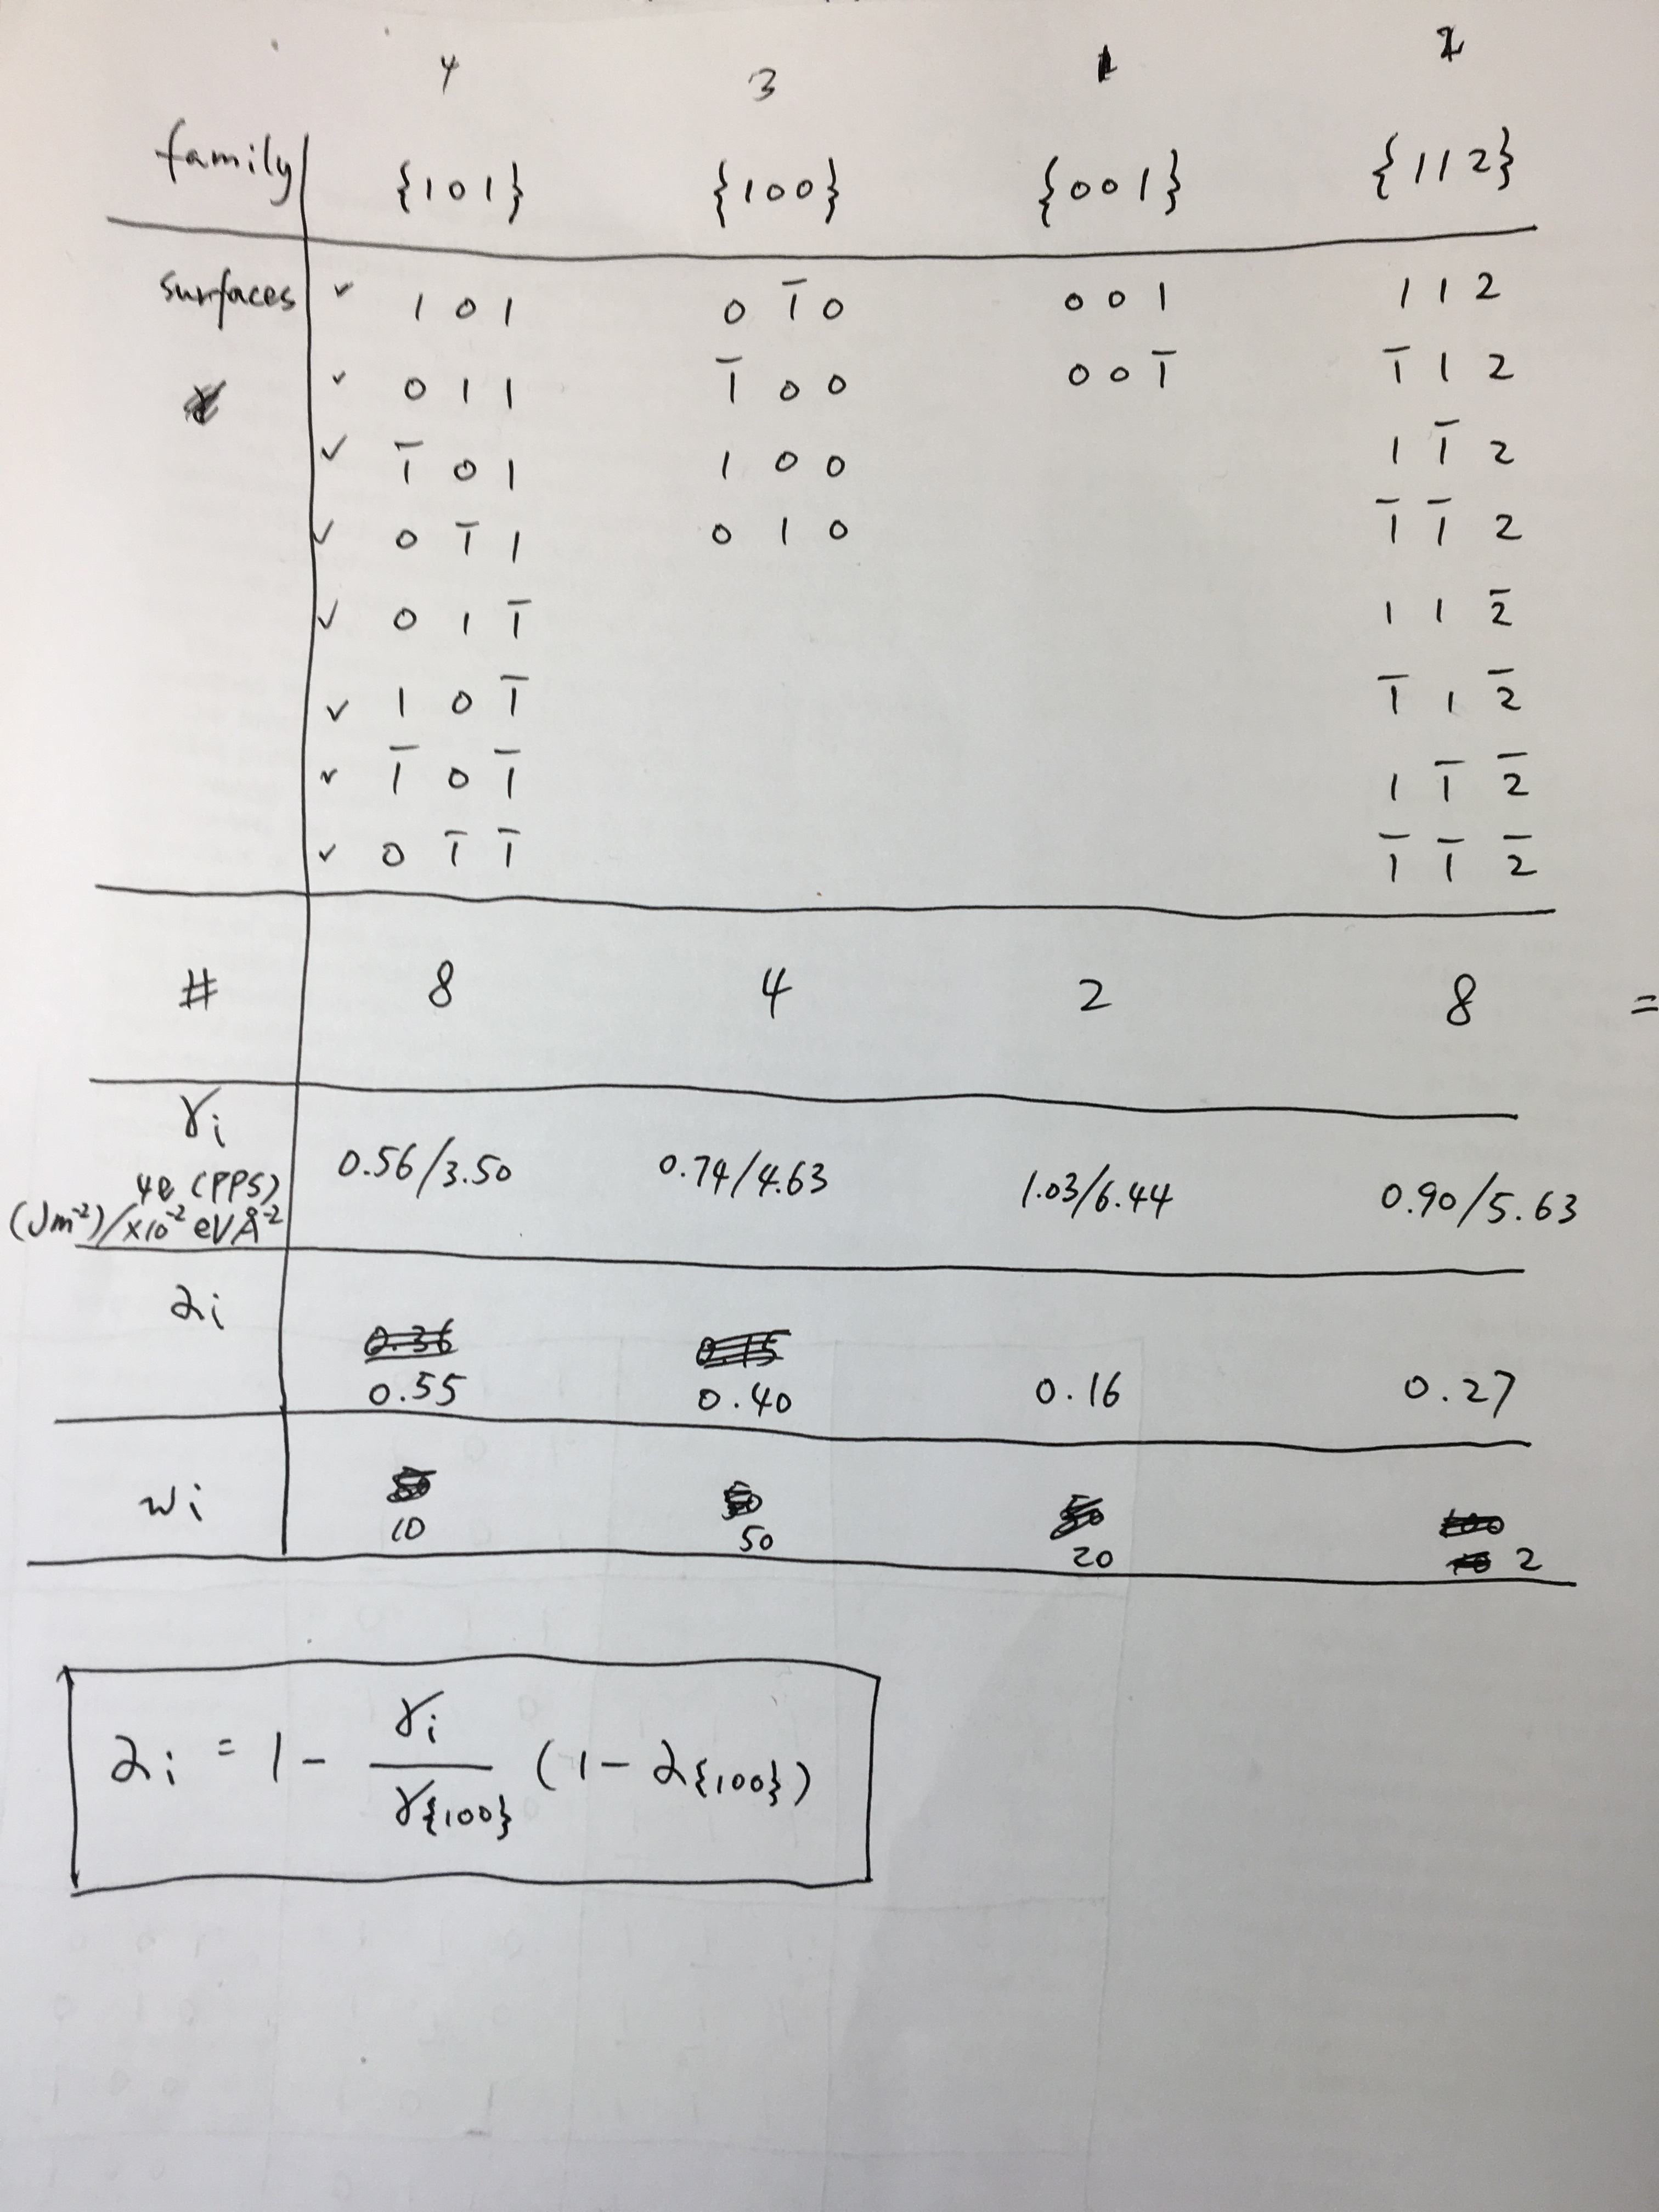 4 3 1
family {101} {100} {001} {112}
surfaces ✓ 1 0 1 0 1̄ 0 0 0 1 1 1 2
✓ 0 1 1 1̄ 0 0 0 0 1̄ 1̄ 1 2
✓ 1̄ 0 1 1 0 0 1 1̄ 2
✓ 0 1̄ 1 0 1 0 1̄ 1̄ 2
✓ 0 1 1̄ 1 1 2̄
✓ 1 0 1̄ 1̄ 1 2̄
✓ 1̄ 0 1̄ 1 1̄ 2̄
✓ 0 1̄ 1̄ 1̄ 1̄ 2̄
# 8 4 2 8 =
γi
4e (PPS) 0.56/3.50 0.74/4.63 1.03/6.44 0.90/5.63
(Jm⁻²)/×10⁻² eVÅ⁻²
λi
0.36 0.15
0.55 0.40 0.16 0.27
wi 50
10 50 20 100
2
λi = 1 - γi/γ{100} (1 - λ{100})